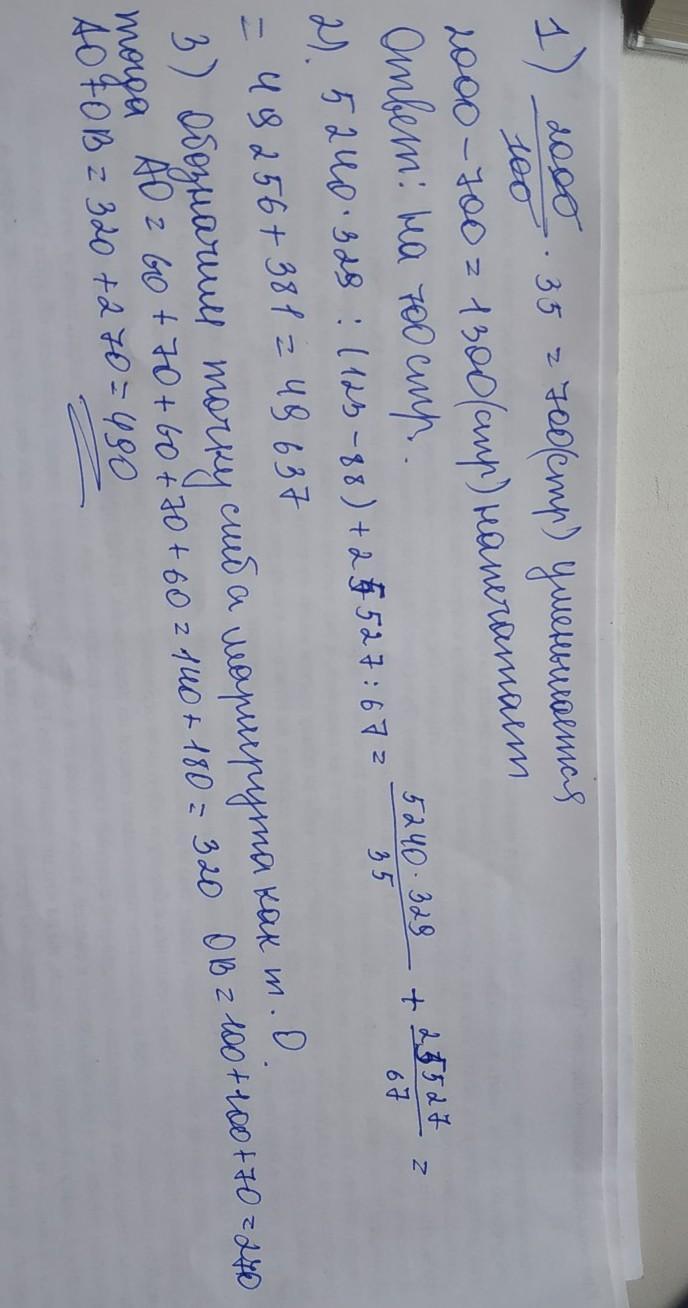 1) 2000/100 · 35 = 700(стр) уменьшается
2000 - 700 = 1300(стр) напечатает
Ответ: на 700 стр.
2). 5240·329 : (123 - 88) + 25527 : 67 = 5240·329/35 + 25527/67 =
= 49256 + 381 = 49637
3) Обозначим точку сгиба маршрута как т. О.
тогда АО = 60 + 70 + 60 + 70 + 60 = 140 + 180 = 320 ОВ = 100 + 100 + 70 = 270
АО + ОВ = 320 + 270 = 490